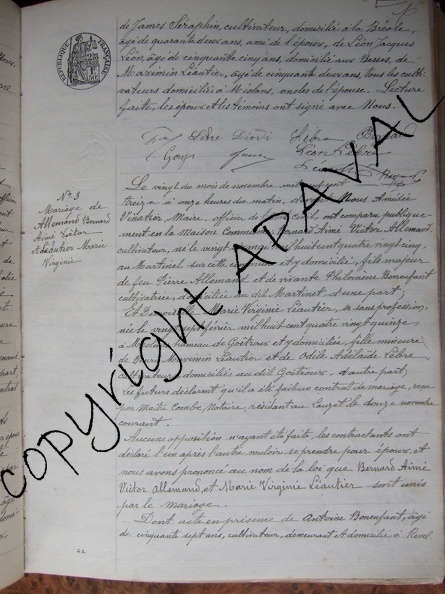 de James Séraphin, cultivateur, domicilié à la Bréole,
âgé de quarante deux ans, ami de l'époux, de Léon Jacques
Léon, âgé de cinquante cinq ans, domicilié aux
de Maximin Léautier, âgé de cinquante deux ans, tous les culti-
vateurs domiciliés à Méolans, oncles de l'épouse. Lecture
faite, les époux et les témoins ont signé avec Nous.
RÉPUBLIQUE FRANÇAISE
N° 3
Mariage de
Allemand Bernard
Aimé Victor
& Léautier Marie
Virginie
Le vingt du mois de novembre mil
treize à onze heures du matin, Nous Aimilée
Maire, officier de ont comparu publique-
ment en la Maison Commune Aimé Victor Allemand,
cultivateur, né le vingt huit cent quatre vingt cinq
au Martinet sur cette commune et y domicilié, fils majeur
de feu Pierre Allemand et de vivante Philomine Bonenfant
cultivatrice, domiciliée au dit Martinet d'une part.
Et Marie Virginie Léautier, sans profession
née le vingt février mil huit cent quatre vingt quinze
à hameau de et y domiciliée, fille mineure
de Maximin Léautier et de Odile Adélaïde Lèbre
cultivateurs domiciliés au dit d'autre part;
les futurs déclarent qu'il a été fait un contrat de mariage, reçu
par Maître Combe Notaire, résidant au Lauzet le douze novembre
courant.
Aucune opposition n'ayant été faite, les contractants ont
déclaré l'un après l'autre vouloir se prendre pour époux, et
nous avons prononcé au nom de la loi que Bernard Aimé
Victor Allemand, et Marie Virginie Léautier sont unis
par le mariage.
Dont acte en présence de Antoine Bonenfant, âgé
de cinquante sept ans, cultivateur, demeurant et domicilié à Revel
copyright APAVAL